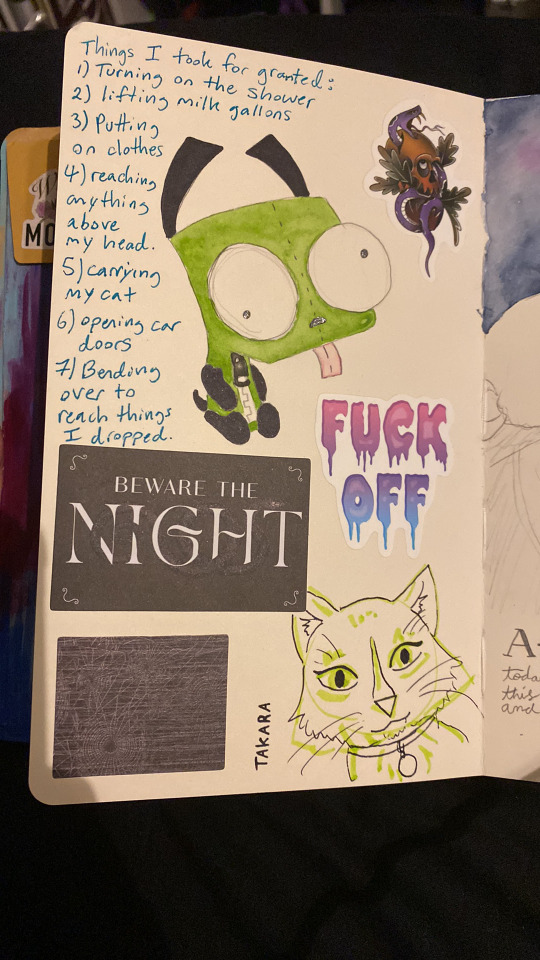 Things I took for granted:
1) Turning on the shower
2) lifting milk gallons
3) Putting
on clothes
4) reaching
anything
above
my head.
5) carrying
my cat
6) opening car
doors
7) Bending
over to
reach things
I dropped.
FUCK
OFF
BEWARE THE
NIGHT
TAKARA
MO
A
toda
this
and